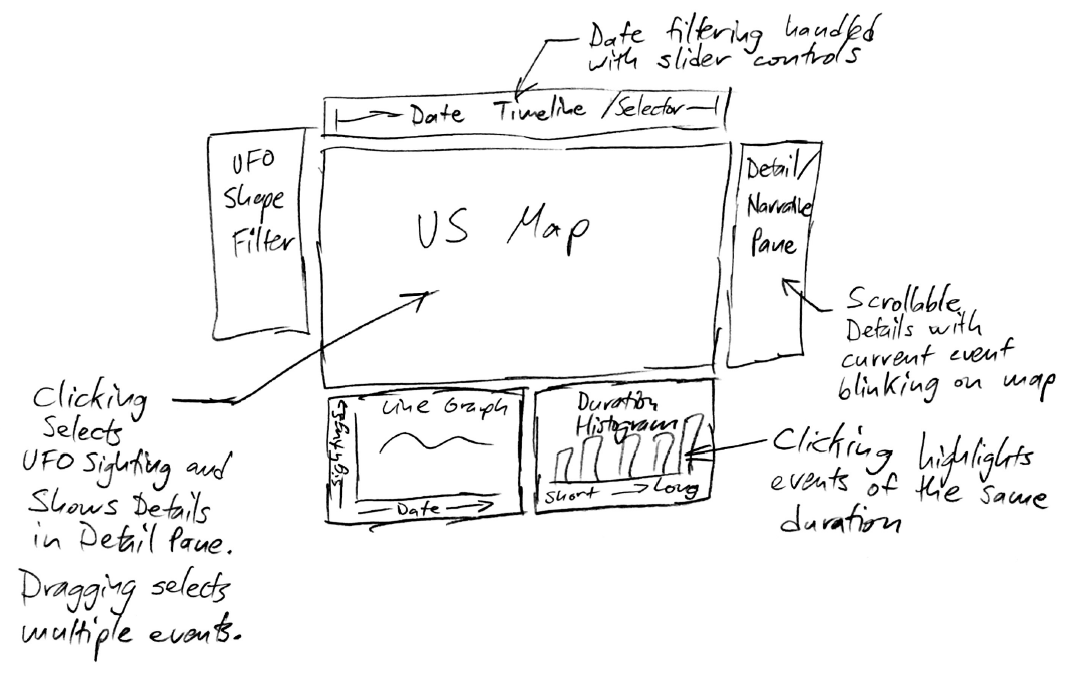 Date filtering handled
with slider controls
Date Timeline / Selector
UFO
Shape
Filter
US Map
Detail/
Narrative
Pane
Scrollable
Details with
current event
blinking on map
Clicking
Selects
UFO Sighting and
Shows Details
in Detail Pane.
Dragging selects
multiple events.
Line Graph
Sightings
Date
Duration
Histogram
Short → Long
Clicking highlights
events of the same
duration